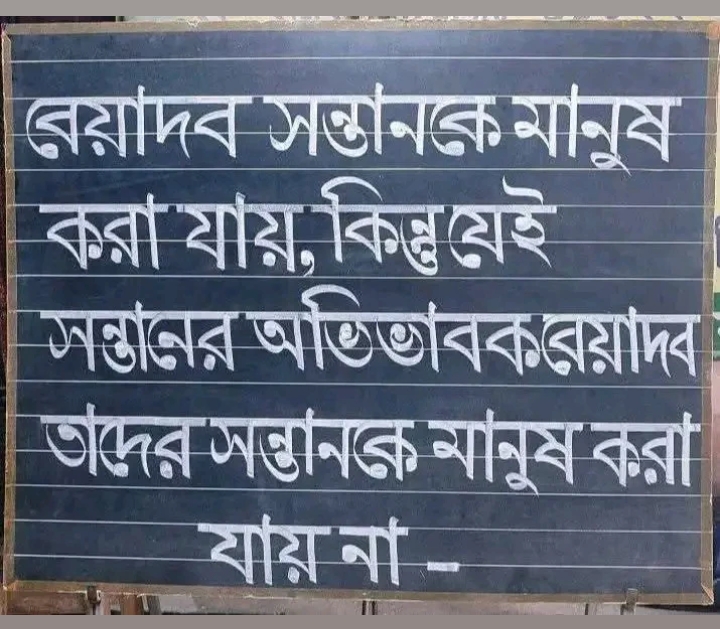 বেয়াদব সন্তানকে মানুষ
করা যায়, কিন্তু যেই
সন্তানের অভিভাবক বেয়াদব
তাদের সন্তানকে মানুষ করা
যায় না -